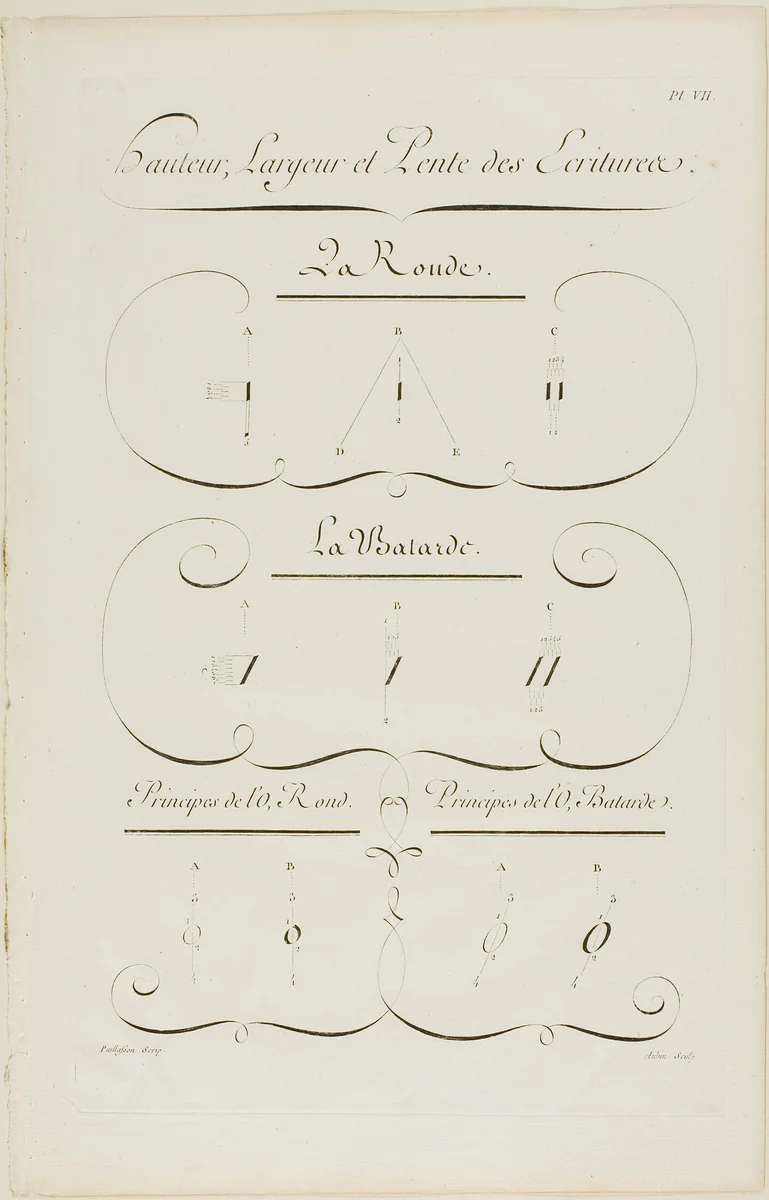 Pl VII.
Hauteur, Largeur et Pente des Ecritures.
La Ronde.
A B C
1
5
2
D E
1 2
La Batarde.
A B C
1
2
1 2 3
Principes de l'O, Rond. Principes de l'O, Batarde.
A B A B
3 3 3 3
1 1 1 1
2 2 2 2
4 4 4 4
Paillasson Scrip. Aubin Sculp